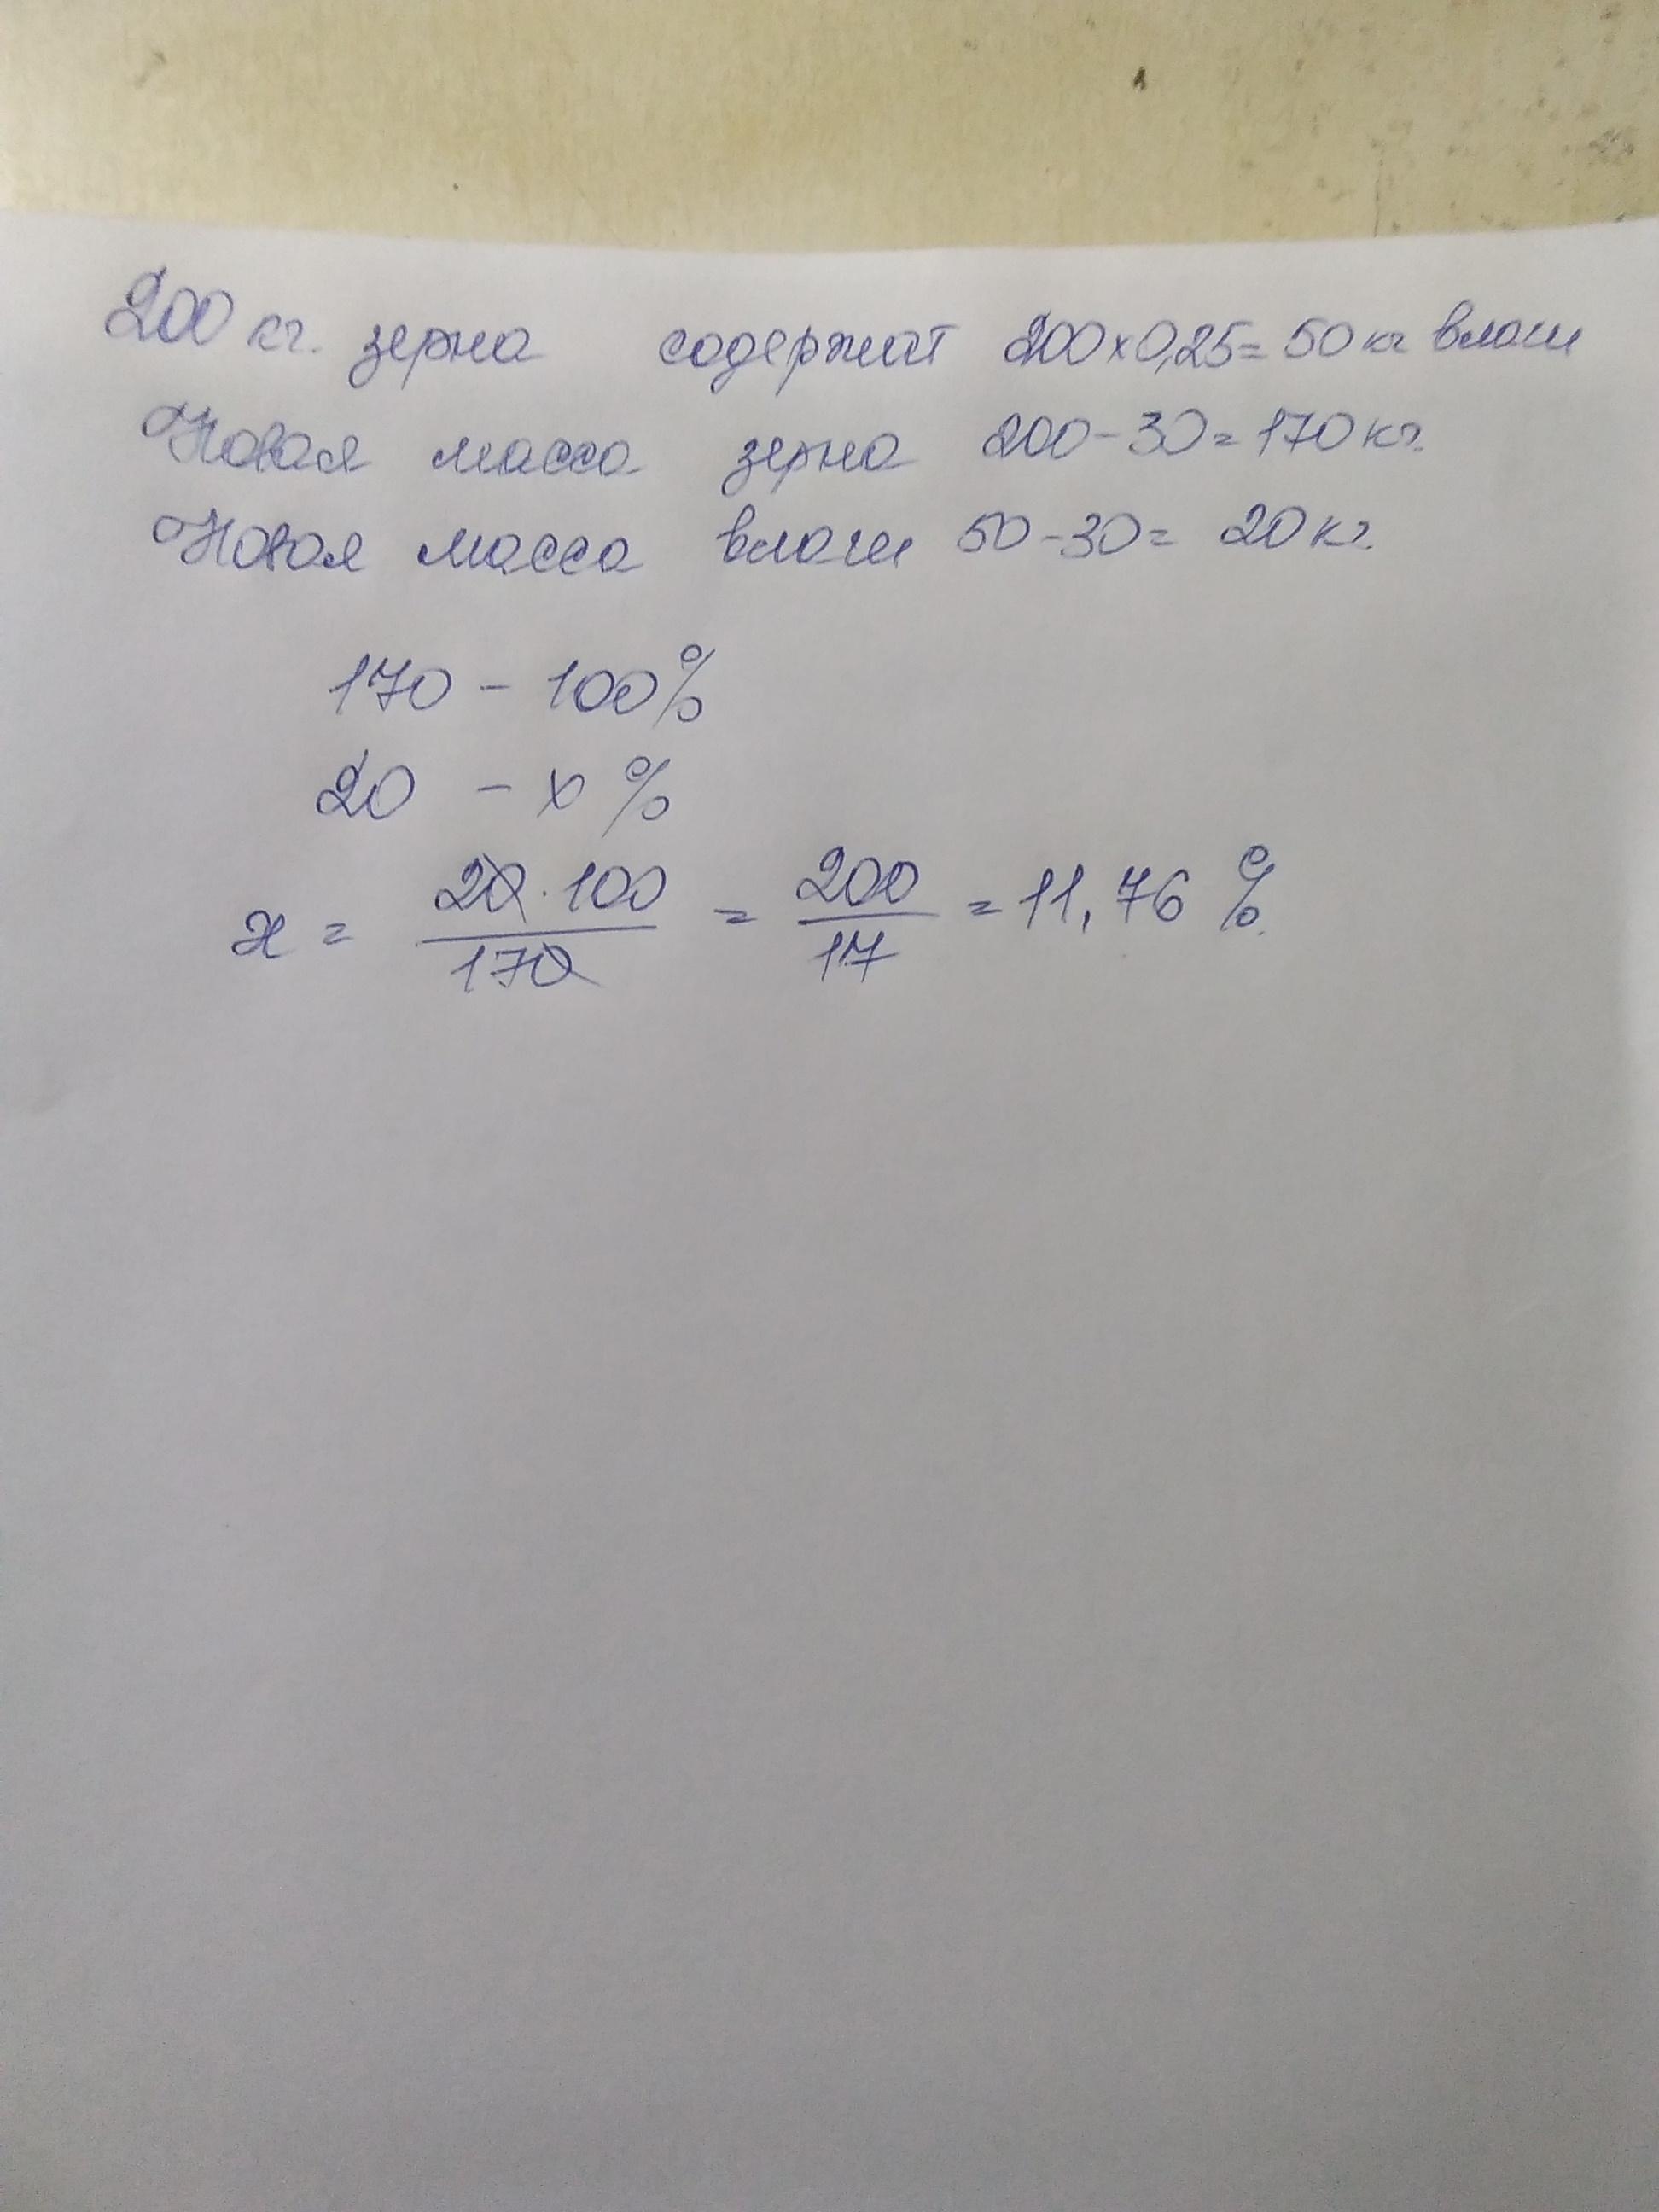 200 кг. зерна содержат 200×0,25=50 кг влаги
Новая масса зерна 200-30=170 кг.
Новая масса влаги 50-30= 20 кг.
170 - 100%
20 - x %
x = 20·100/170 = 200/17 = 11,76 %